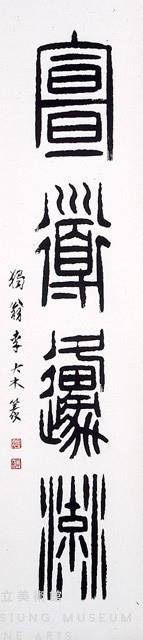 宣導流
獨翁李大木篆
立美術館
SIUNG MUSEUM
NE ARTS